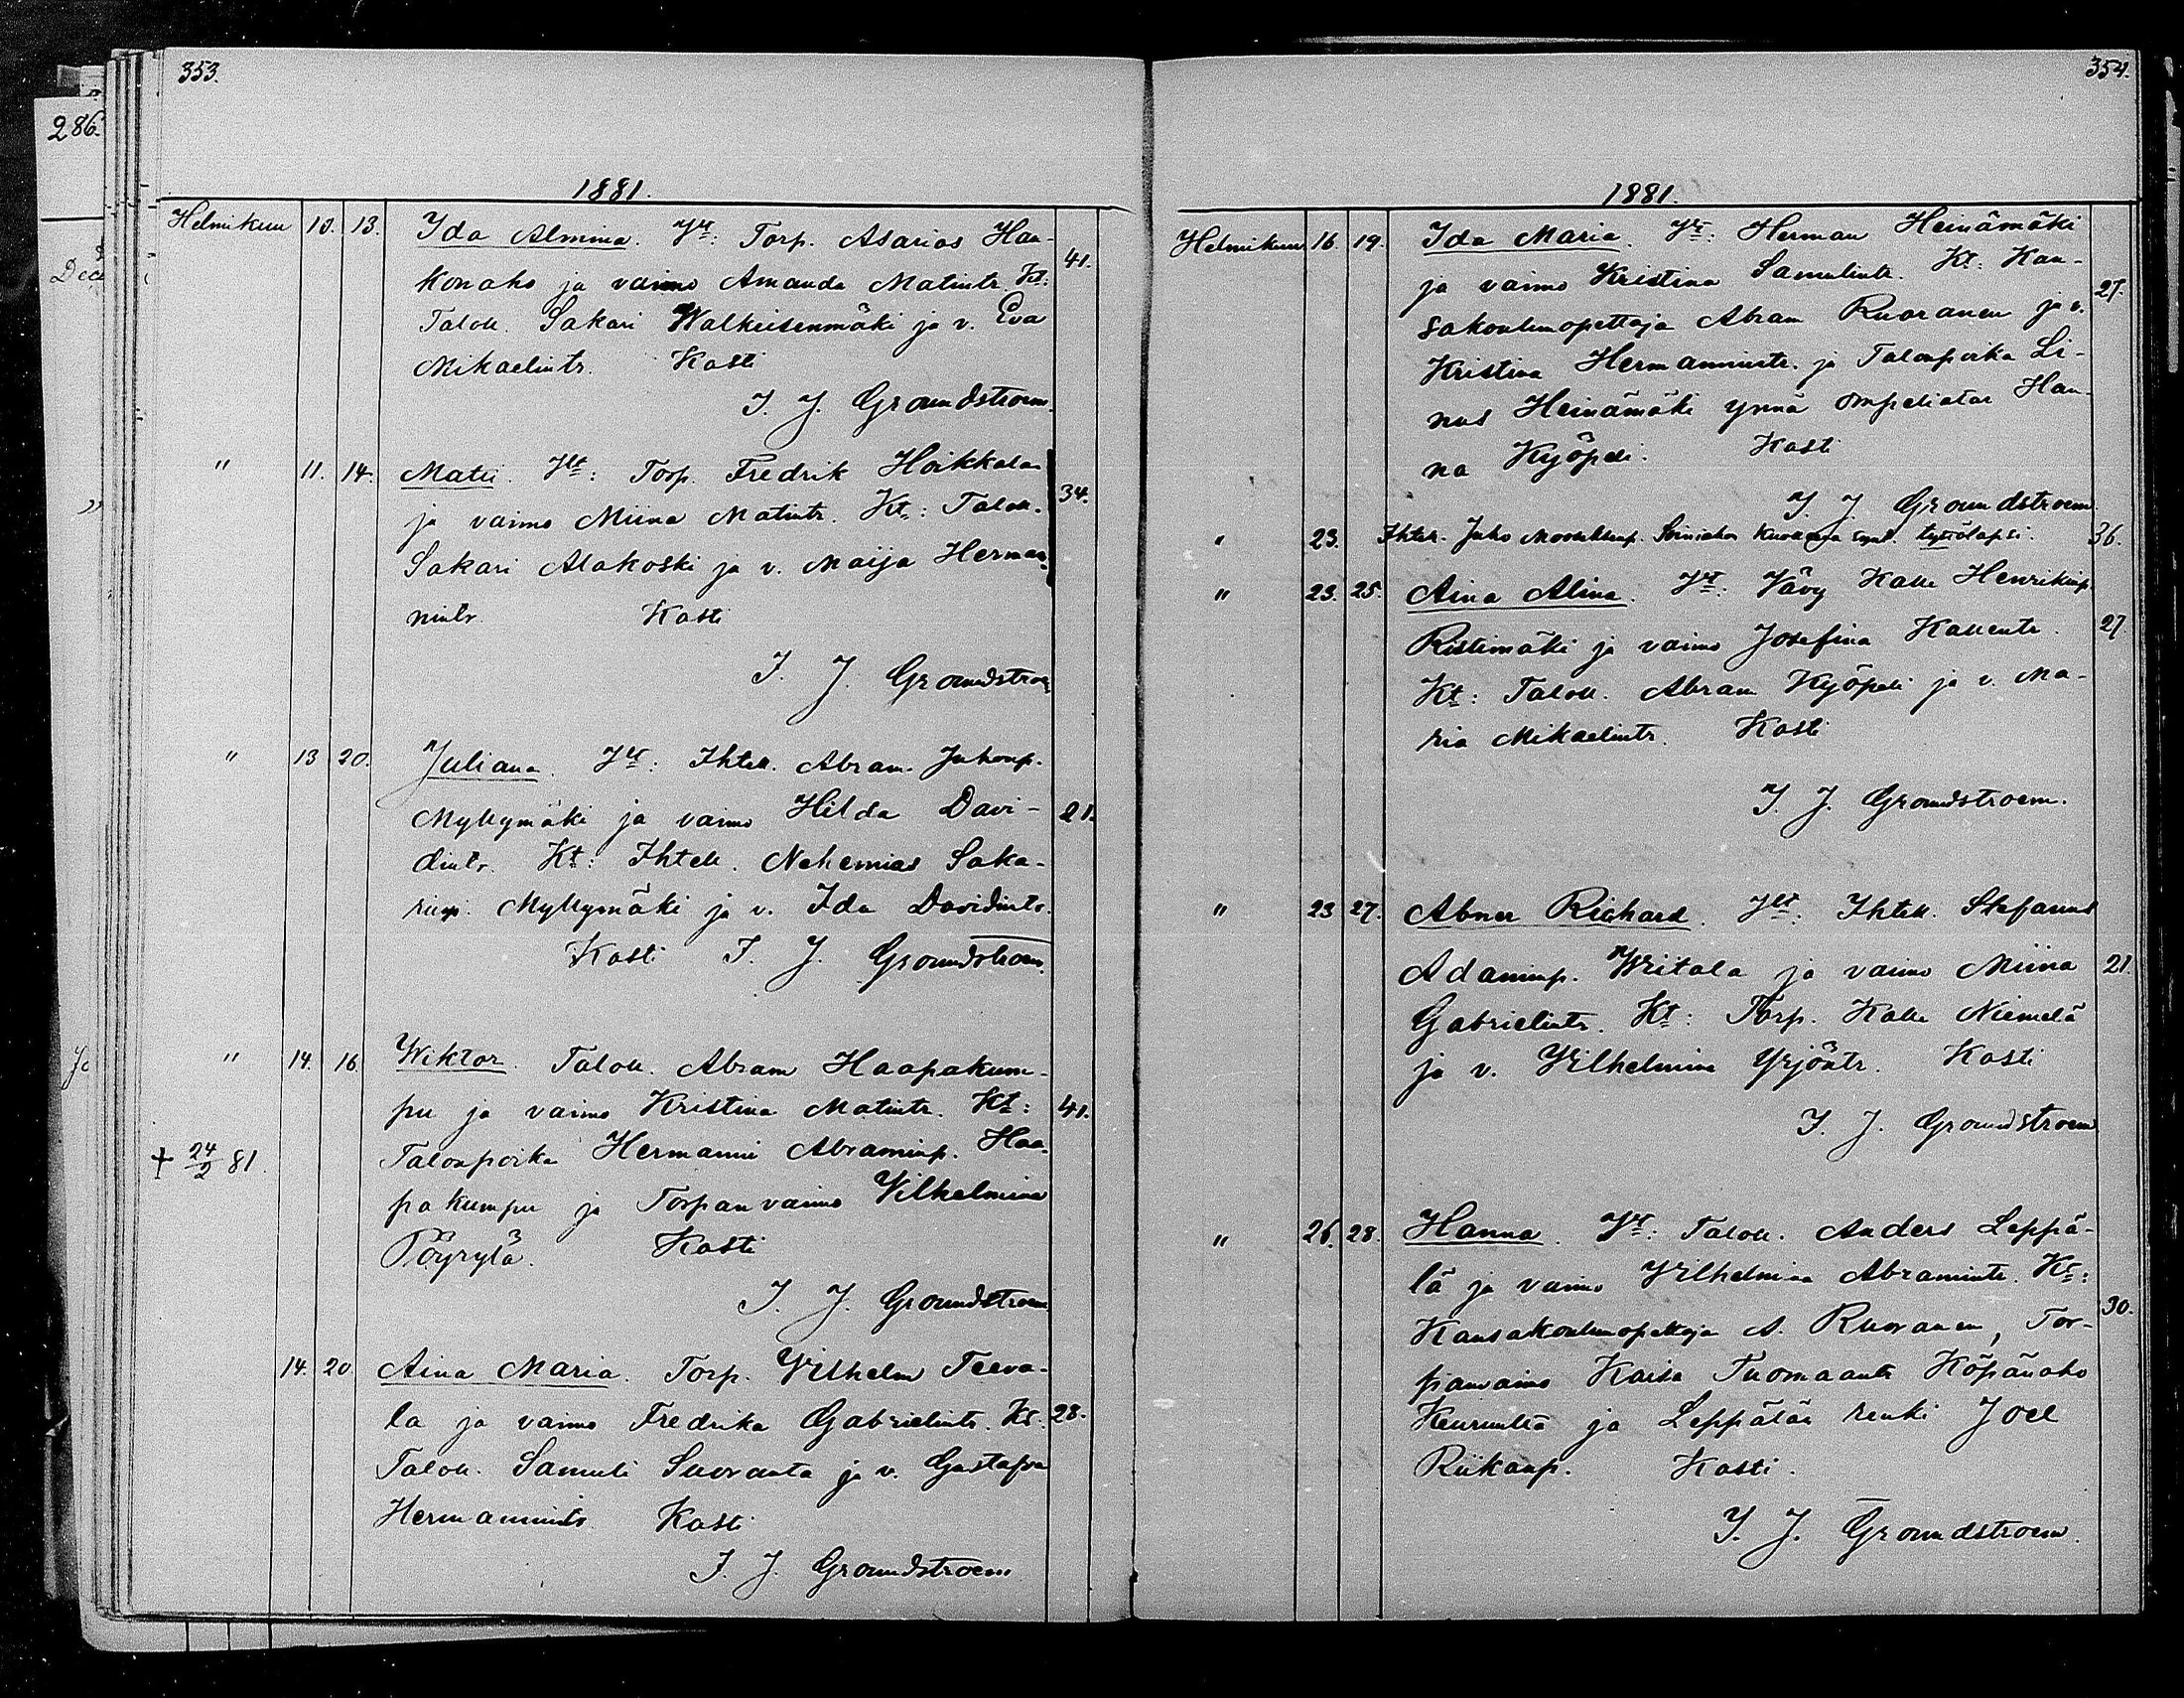 353.
286.
1881.
Helmikuu 10. 13. Ida Almina. Vt: Torp. Asarias Haa-
konaho ja vaimo Amanda Matintr. Kt: 41.
Talok. Sakari Walkeisenmäki ja v. Eva
Mikaelintr. Kasti
I. J. Groundstroem.
" 11. 14. Matti. Vt: Torp. Fredrik Hoikkala
ja vaimo Miina Matintr. Kt: Talok. 34.
Sakari Alakoski ja v. Maija Herman-
nintr. Kasti
I. J. Groundstroem
" 13 20. Juliana. Vt: Ihtell. Abram Juhonp.
Myllymäki ja vaimo Hilda Davi- 21.
dintr. Kt: Ihtell. Nehemias Saka-
rinp. Myllymäki ja v. Ida Davidintr.
Kasti I. J. Groundstroem.
" 14. 16 Wiktor. Talok. Abram Haapakum-
pu ja vaimo Kristina Matintr. Kt: 41.
† 24/2 81. Talonpoika Hermanni Abraminp. Haa-
pakumpu ja Torpanvaimo Vilhelmina
Pöyrylä. Kasti
I. J. Groundstroem
14. 20. Aina Maria. Torp. Vilhelm Teeva-
la ja vaimo Fredrika Gabrielintr. Kt: 28.
Talok. Samuli Suoranta ja v. Gustafva
Hermannintr. Kasti
I. J. Groundstroem
354.
1881.
Helmikuu 16. 19. Ida Maria. Vt: Herman Heinämäki
ja vaimo Kristina Samulintr. Kt: Kan- 27.
sakoulunopettaja Abram Ruoranen ja v.
Kristina Hermannintr. ja Talonpoika Li-
nus Heinämäki ynnä ompeliatar Han-
na Kyöpeli. Kasti
I. J. Groundstroem
" 23. Ihtell. Juho kuollena synt. tyttölapsi. 36.
" 23. 25. Aina Alina. Vt: Vävy Kalle Henrikinp.
Ristimäki ja vaimo Josefina Kallentr. 27.
Kt: Talok. Abram Kyöpeli ja v. Ma-
ria Mikaelintr. Kasti
I. J. Groundstroem.
" 23 27. Abner Richard. Vt: Ihtell. Stefanus
Adaminp. Writala ja vaimo Miina 21.
Gabrielintr. Kt: Torp. Kalle Niemelä
ja v. Vilhelmina Yrjöntr. Kasti
I. J. Groundstroem
" 26. 28. Hanna. Vt: Talok. Anders Leppä-
lä ja vaimo Vilhelmina Abramintr. Kt:
Kansakoulunopettaja A. Ruoranen, Tor- 30.
panvaimo Kaisa Tuomaantr Köpänaho
Keuruulta ja Leppälän renki Joel
Riikanp. Kasti.
I. J. Groundstroem.